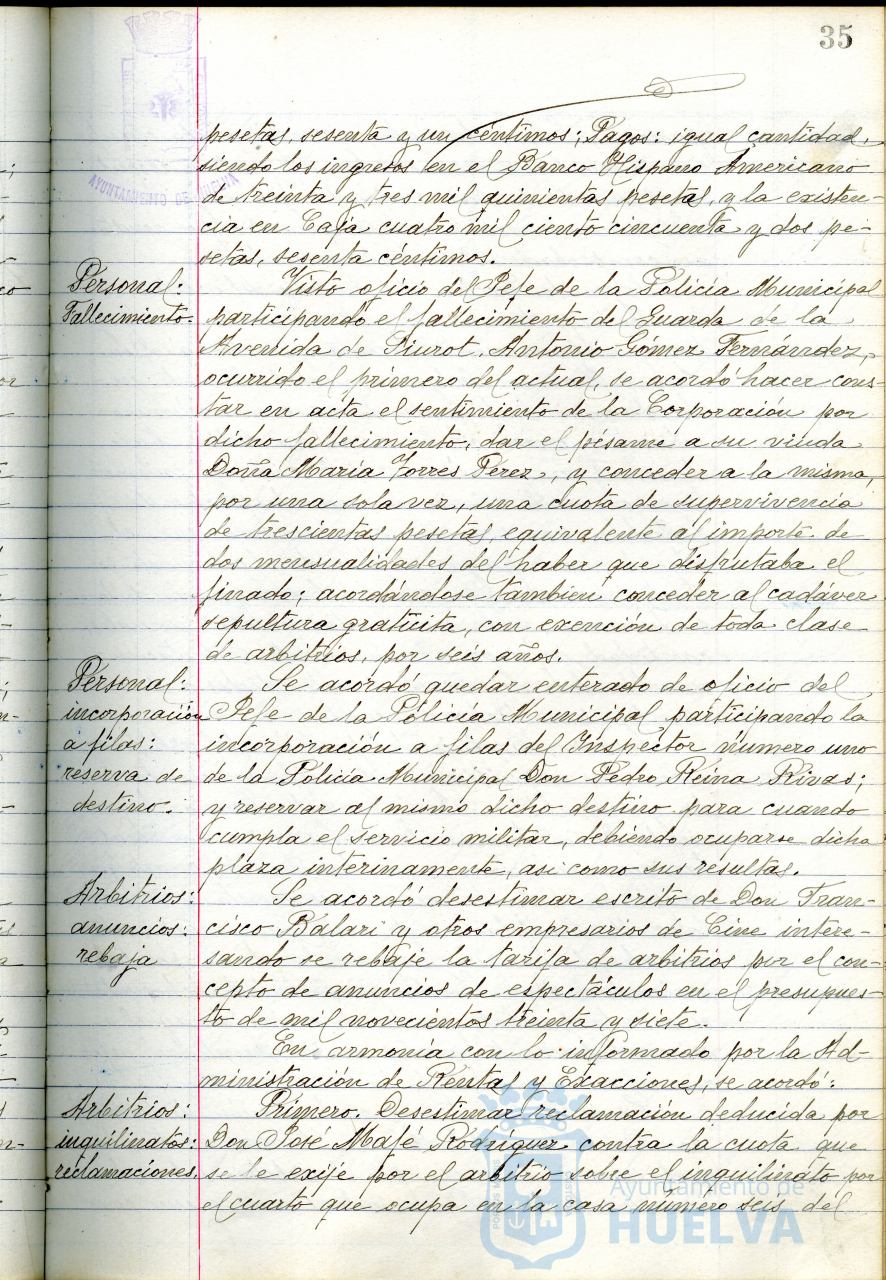 35
pesetas, sesenta y un céntimos; Pagos: igual cantidad,
siendo los ingresos en el Banco Hispano Americano
de treinta y tres mil quinientas pesetas, y la existen-
cia en Caja cuatro mil ciento cincuenta y dos pe-
setas, sesenta céntimos.
Personal:
Fallecimiento.
Visto oficio del Jefe de la Policía Municipal
participando el fallecimiento del Guarda de la
Avenida de Siurot, Antonio Gómez Fernández,
ocurrido el primero del actual, se acordó hacer cons-
tar en acta el sentimiento de la Corporación por
dicho fallecimiento, dar el pésame a su viuda
Doña María Torres Pérez, y conceder a la misma,
por una sola vez, una cuota de supervivencia
de trescientas pesetas, equivalente al importe de
dos mensualidades del haber que disfrutaba el
finado; acordándose también conceder al cadáver
sepultura gratuita, con exención de toda clase
de arbitrios, por seis años.
Personal:
incorporación
a filas:
reserva de
destino.
Se acordó quedar enterado de oficio del
Jefe de la Policía Municipal participando la
incorporación a filas del Inspector número uno
de la Policía Municipal Don Pedro Reina Rivas;
y reservar al mismo dicho destino para cuando
cumpla el servicio militar, debiendo ocuparse dicha
plaza interinamente, asi como sus resultas.
Arbitrios:
anuncios:
rebaja
Se acordó desestimar escrito de Don Fran-
cisco Balari y otros empresarios de Cine intere-
sando se rebaje la tarifa de arbitrios por el con-
cepto de anuncios de espectáculos en el presupues-
to de mil novecientos treinta y siete.
En armonía con lo informado por la Ad-
ministración de Rentas y Exacciones, se acordó:
Arbitrios:
inquilinatos:
reclamaciones.
Primero. Desestimar reclamación deducida por
Don José Mafé Rodríguez contra la cuota que
se le exije por el arbitrio sobre el inquilinato por
el cuarto que ocupa en la casa número seis del
AYUNTAMIENTO DE HUELVA
Ayuntamiento de
HUELVA